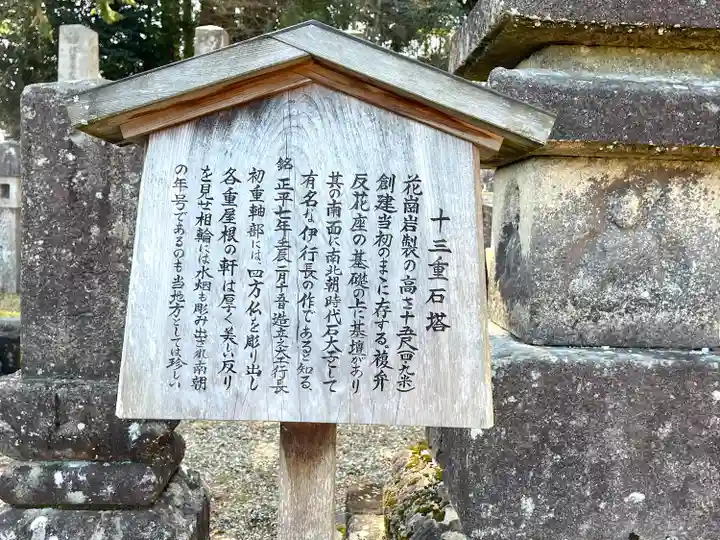 十三重石塔
花崗岩製の高さ十五尺(四、九米)
創建当初のまゝに存する。複弁
反花座の基礎の上に基壇があり
其の南面に南北朝時代石大工として
有名な伊行長の作であると知る、
銘 正平七年壬辰二月十五日造立之大工行長
初重軸部には、四方仏を彫り出し
各重屋根の軒は厚く美しい反り
を見せ相輪には水烟も彫み出され南朝
の年号であるのも当地方としては珍しい